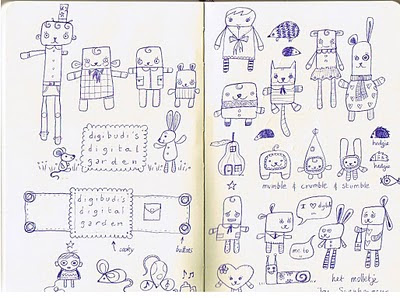 digibudi's
digital
garden
digibudi's
digital
garden
hedgie
hedgie
mumble & crumble & stumble
I ♡
me to
het molletje